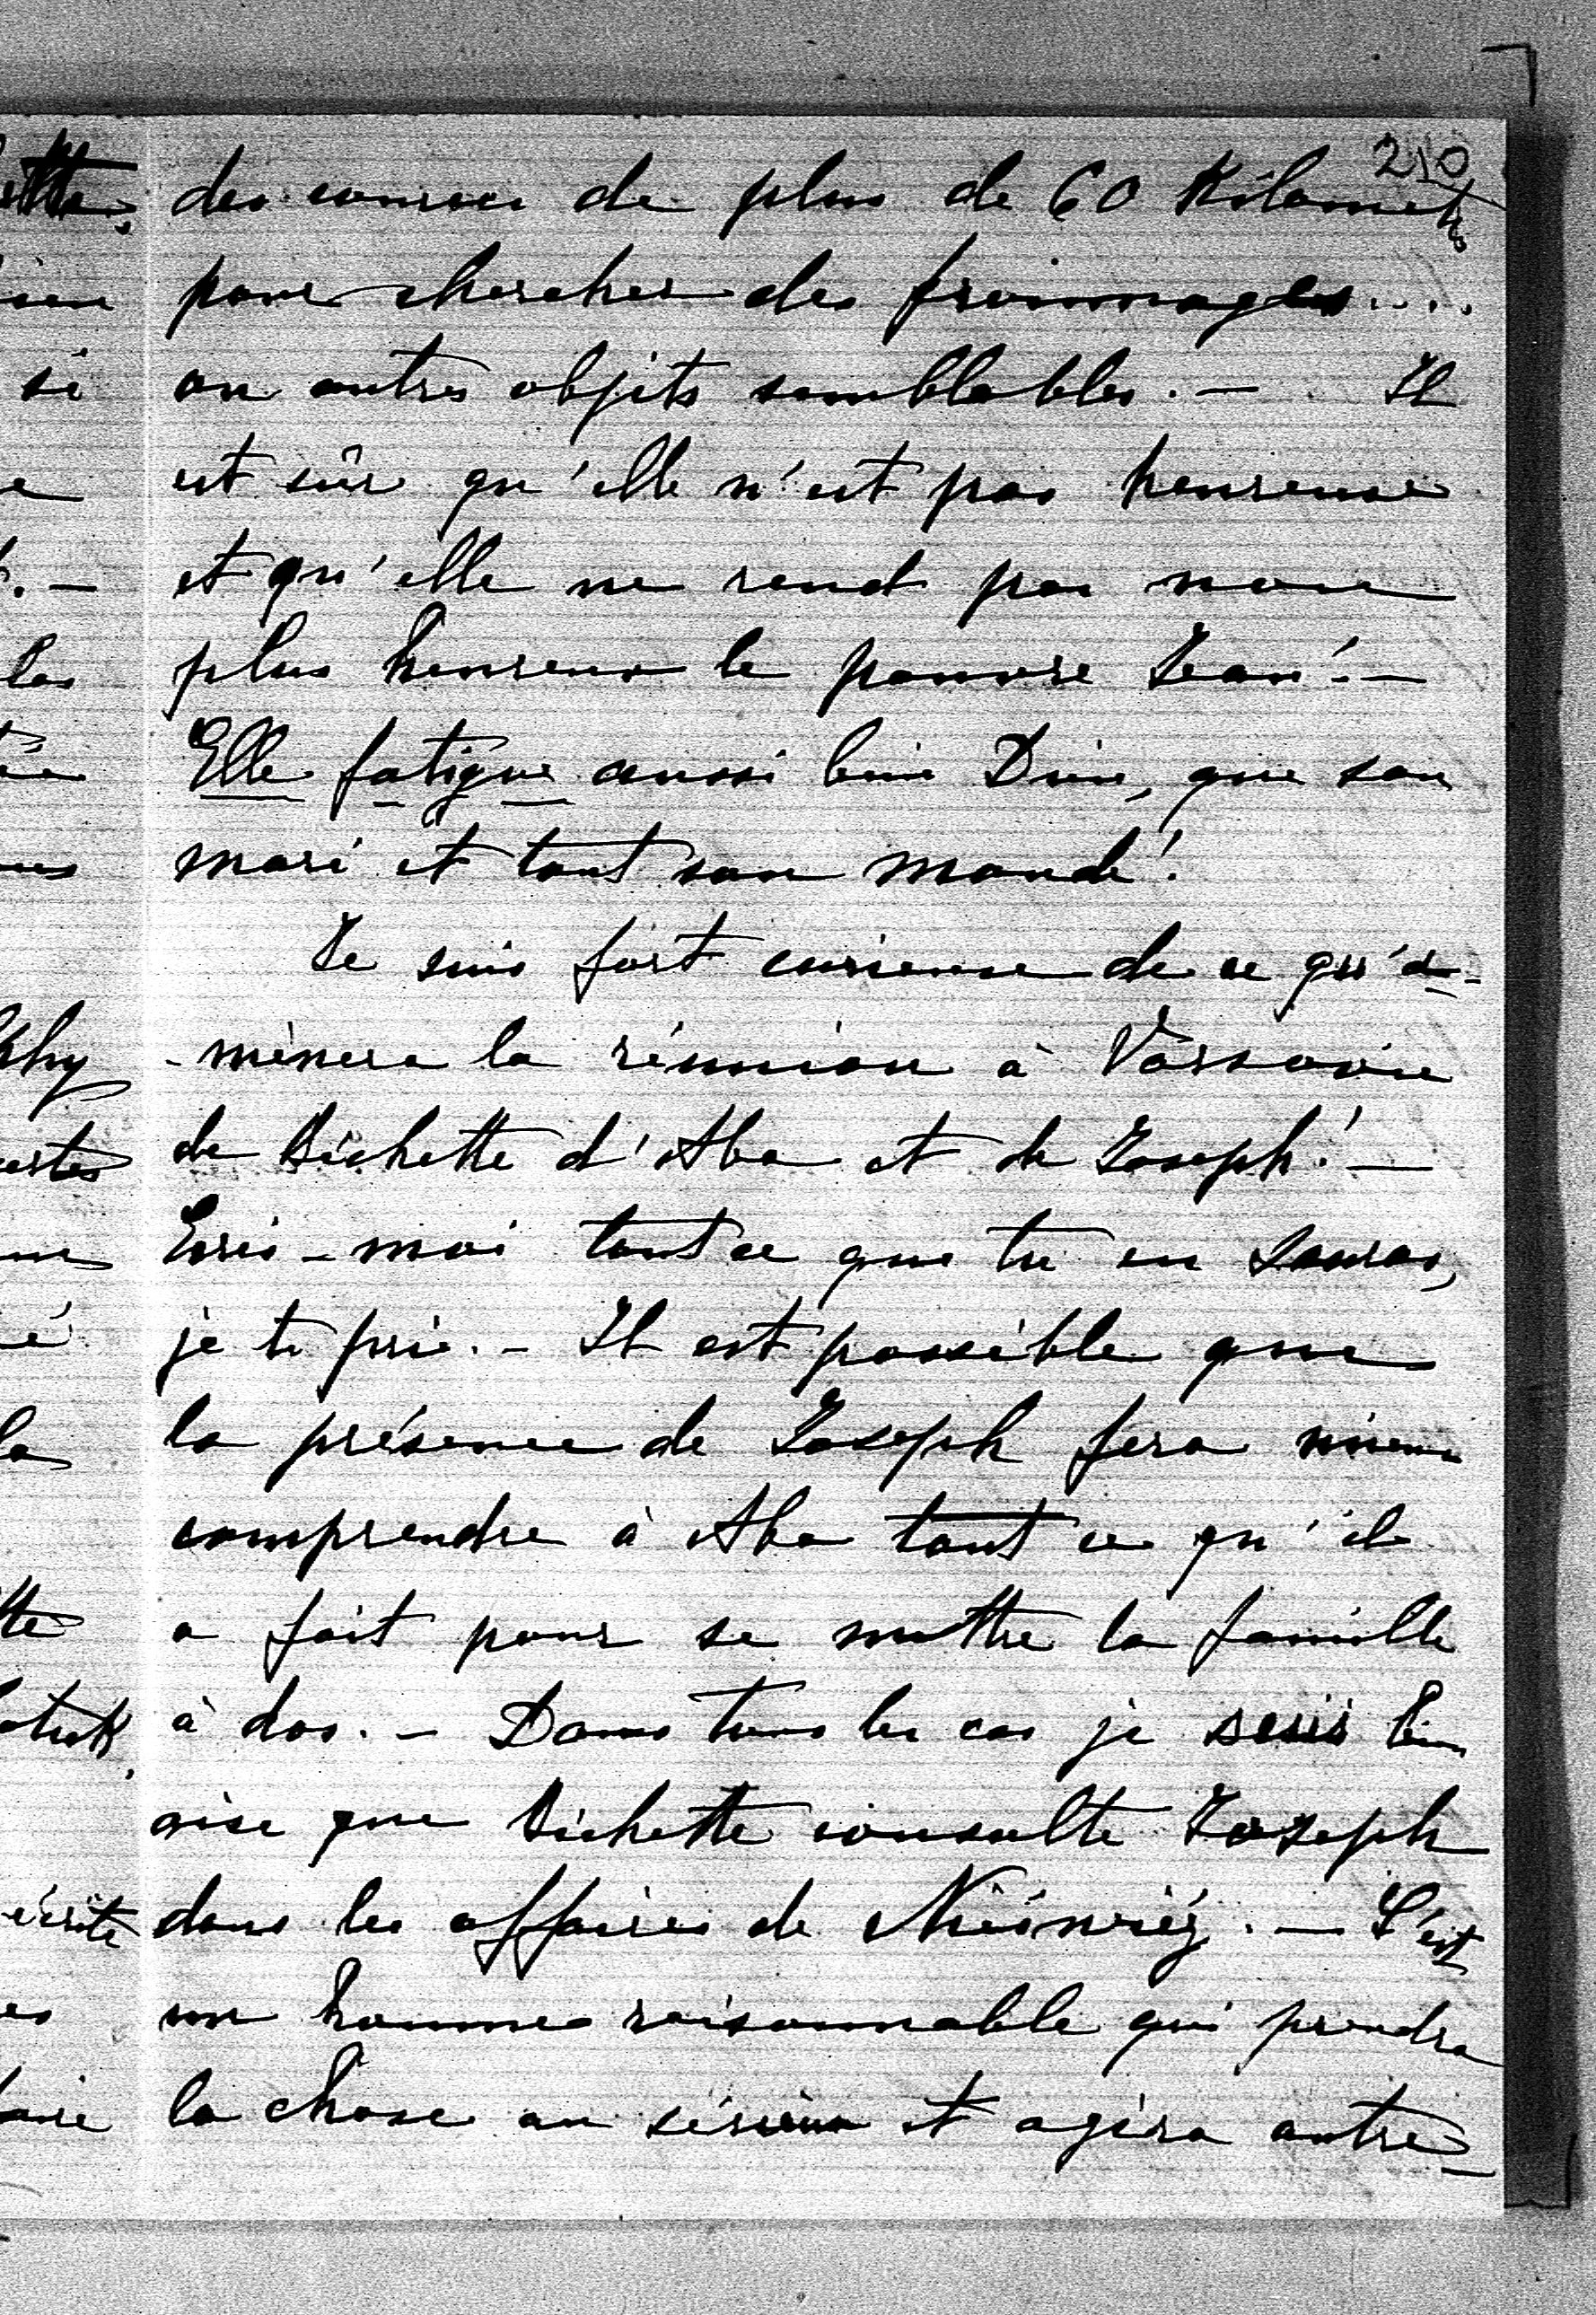 210
des courses de plus de 60 Kilometres
pour chercher des frommages....
ou autres objets semblables. — Il
est sûr qu'elle n'est pas heureuse
et qu'elle ne rend pas non
plus heureux le pauvre Jean! —
Elle fatigue aussi bien Dieu, que son
mari et tout son monde!
Je suis fort curieuse de ce qu'a-
-mènera la réunion à Varsovie
de Bichette d'Aba et de Joseph! —
Ecris-moi tout ce que tu en sauras,
je te prie. — Il est possible que
la présence de Joseph fera mieux
comprendre à Aba tout ce qu'il
a fait pour se mettre la famille
à dos. — Dans tous les cas je suis bien
aise que Bichette consulte Joseph
dans les affaires de Nieśwież. — C'est
un homme raisonnable qui prendra
la chose au sérieux et agira autre-